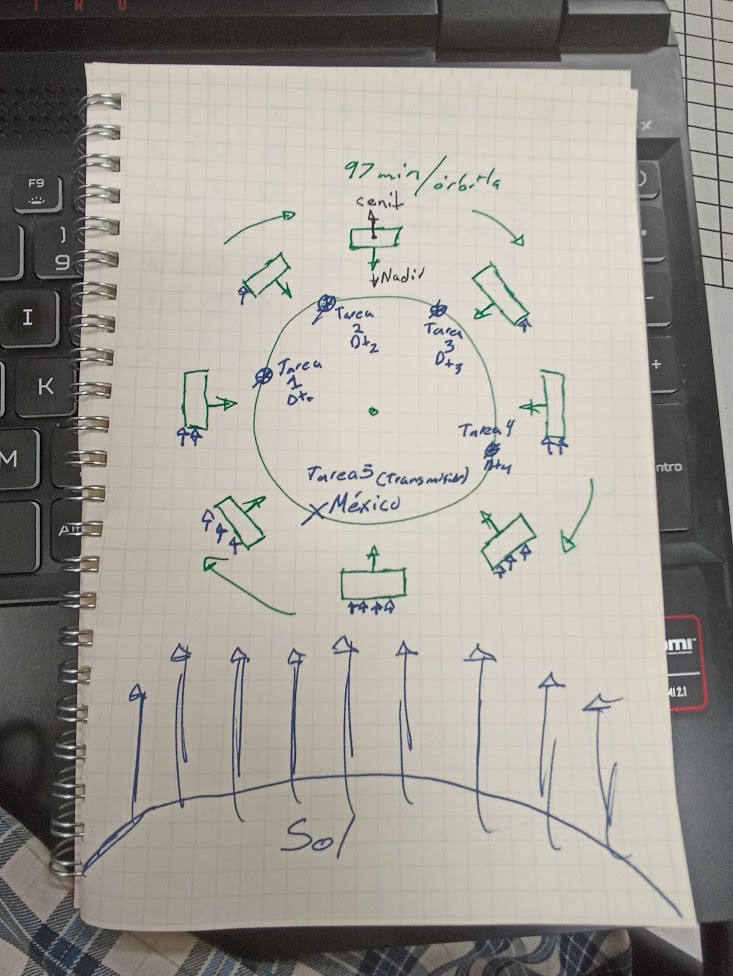 97 min/órbita
cenit
Nadir
Tarea
2
Dt₂
Tarea
3
Dt₃
Tarea
1
Dt₁
Tarea 4
Dt₄
Tarea 5 (Transmisión)
México
Sol
F9
)
9
I
K
M
Alt